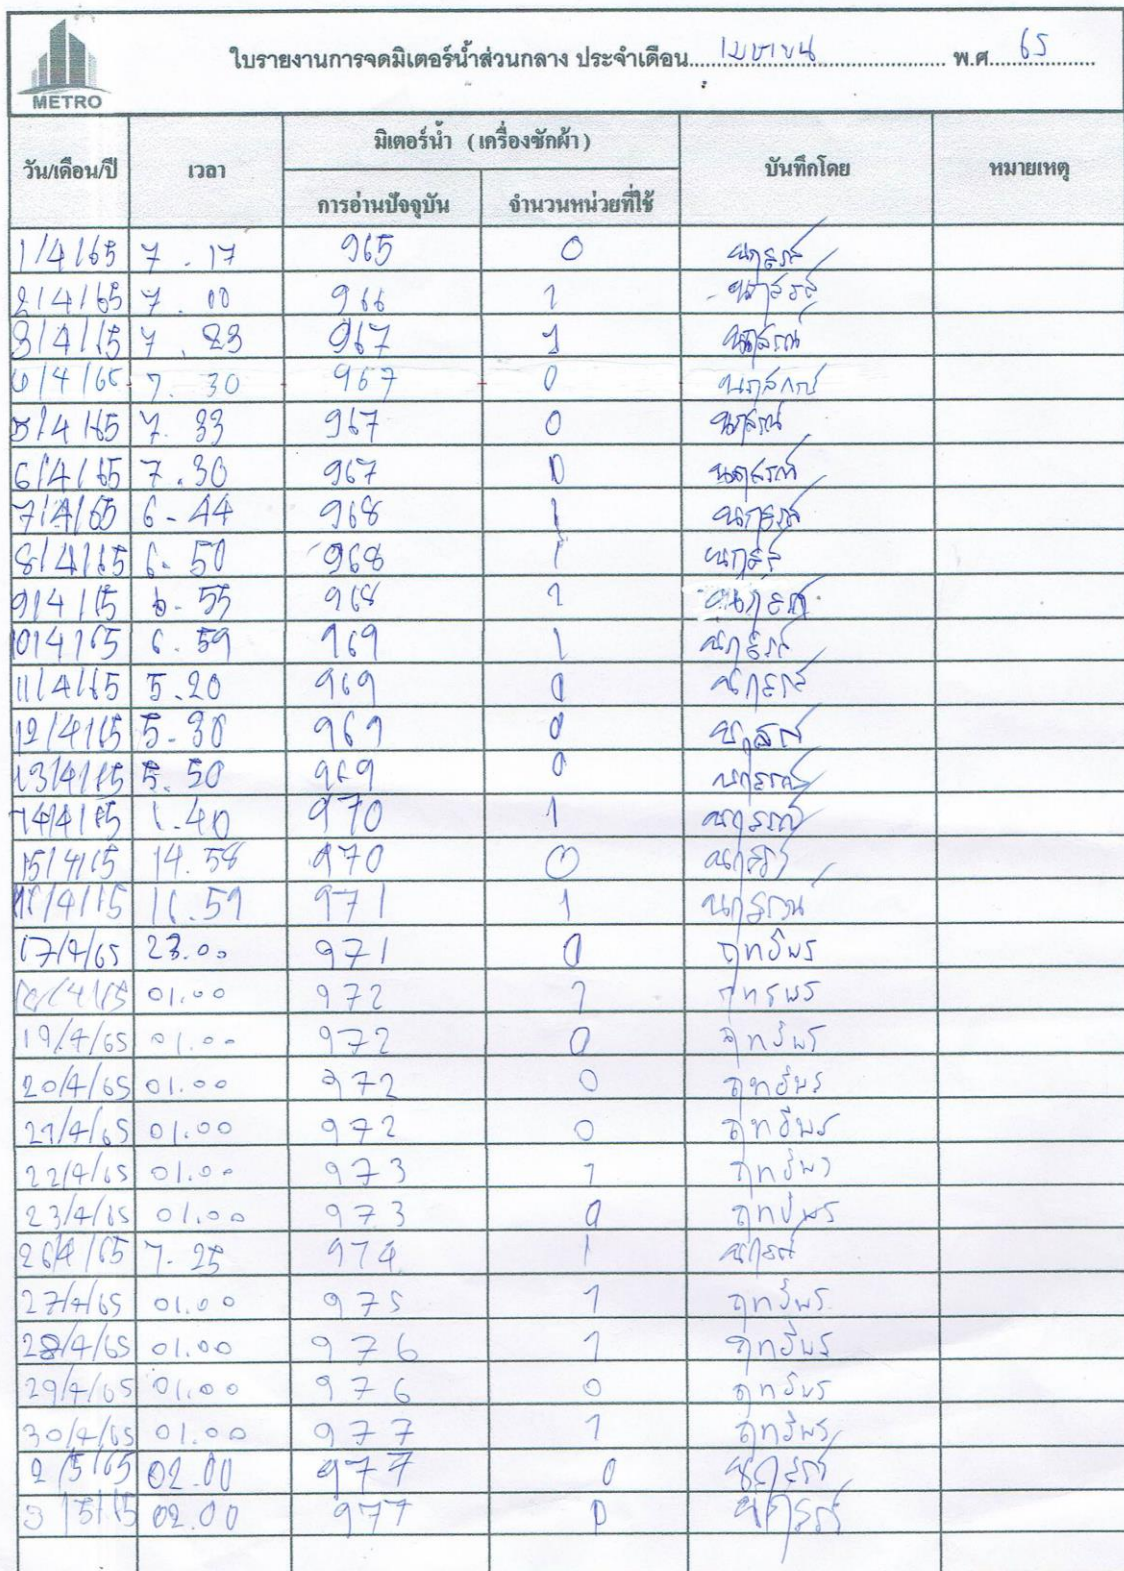 METRO
ใบรายงานการจดมิเตอร์น้ำส่วนกลาง ประจำเดือน เมษายน พ.ศ. 65
วัน/เดือน/ปี เวลา มิเตอร์น้ำ (เครื่องซักผ้า) บันทึกโดย หมายเหตุ
การอ่านปัจจุบัน จำนวนหน่วยที่ใช้
1/4/65 7.17 965 0
2/4/65 7.00 966 1
3/4/65 7.23 967 1
4/4/65 7.30 967 0
5/4/65 7.33 967 0
6/4/65 7.30 967 0
7/4/65 6-44 968 1
8/4/65 6-50 968 1
9/4/65 6-55 968 1
10/4/65 6.59 969 1
11/4/65 5.20 969 0
12/4/65 5-30 969 0
13/4/65 5.50 969 0
14/4/65 6.40 970 1
15/4/65 14.58 970 0
16/4/65 16.59 971 1
17/4/65 23.00 971 0 ฤทธิพร
18/4/65 01.00 972 1 ฤทธิพร
19/4/65 01.00 972 0 ฤทธิพร
20/4/65 01.00 972 0 ฤทธิพร
21/4/65 01.00 972 0 ฤทธิพร
22/4/65 01.00 973 1 ฤทธิพร
23/4/65 01.00 973 0 ฤทธิพร
26/4/65 7-25 974 1
27/4/65 01.00 975 1 ฤทธิพร
28/4/65 01.00 976 1 ฤทธิพร
29/4/65 01.00 976 0 ฤทธิพร
30/4/65 01.00 977 1 ฤทธิพร
2/5/65 02.00 977 0
3/5/65 02.00 977 0